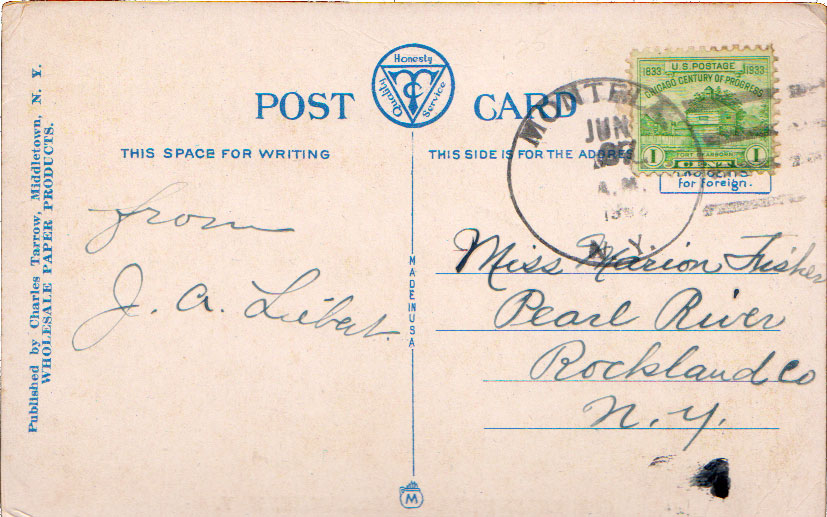 POST CARD
Honesty
Quality Service
TC
THIS SPACE FOR WRITING
THIS SIDE IS FOR THE ADDRESS
U.S. POSTAGE
1833 1933
CHICAGO CENTURY OF PROGRESS
FORT DEARBORN
1 CENT 1
for foreign.
JUN
A.M.
N.Y.
from
J. A. Liebert.
Miss Marion Fisher
Pearl River
Rockland Co
N. Y.
MADE IN USA
M
Published by Charles Tarrow, Middletown, N. Y.
WHOLESALE PAPER PRODUCTS.